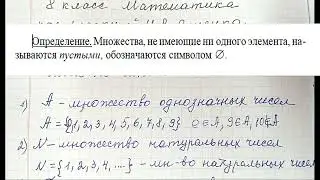 8 класс Математика
Определение. Множества, не имеющие ни одного элемента, на-
зываются пустыми, обозначаются символом ∅.
1) A – множество однозначных чисел
A = {0,1,2,3,4,5,6,7,8,9} 0∈A, 9∈A, 10∉A
2) N – множество натуральных чисел
N = {1,2,3,4,....} – мн-во натуральных чисел